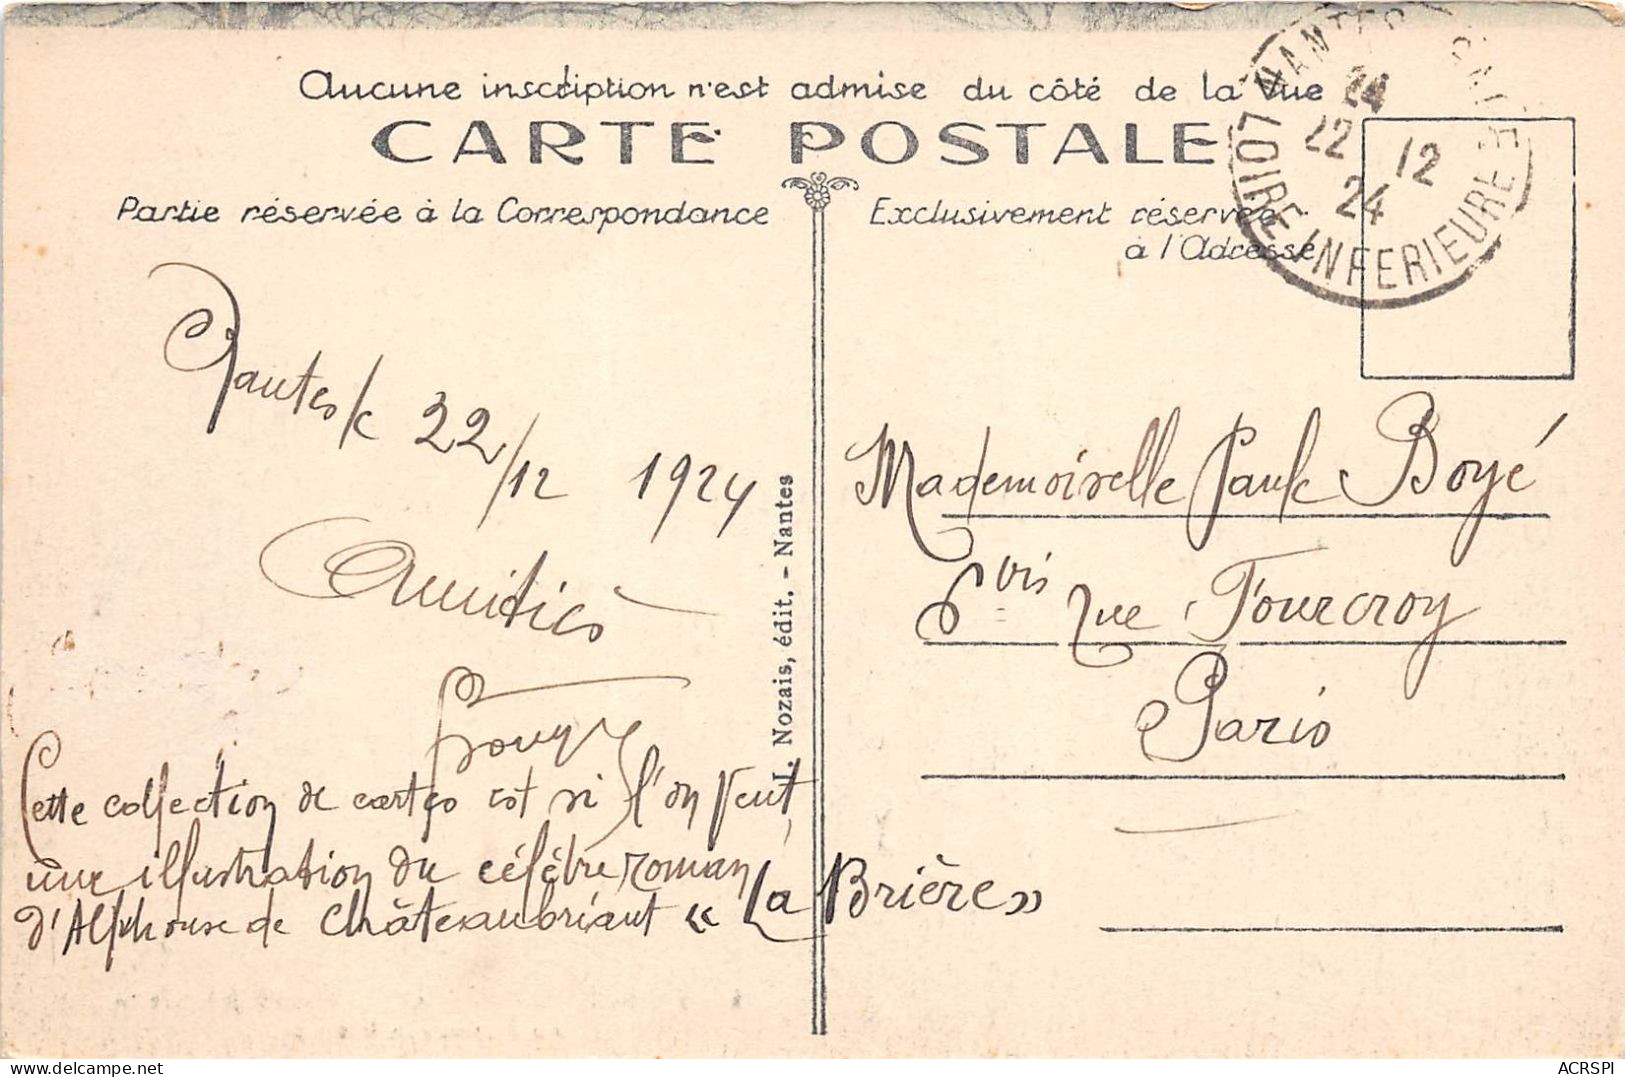 Aucune inscription n'est admise du côté de la Vue
CARTE POSTALE
Partie réservée à la Correspondance
Exclusivement réservée
à l'Adresse
NANTES
LOIRE INFERIEURE
24
22 12
24
Nantes le 22/12 1924
Amitiés
Cette collection de cartes est si l'on veut,
une illustration du célèbre roman
d'Alphonse de Châteaubriant « La Brière »
J. Nozais, édit. - Nantes
Mademoiselle Paule Boyé
6 bis rue Fourcroy
Paris
ACRSPI